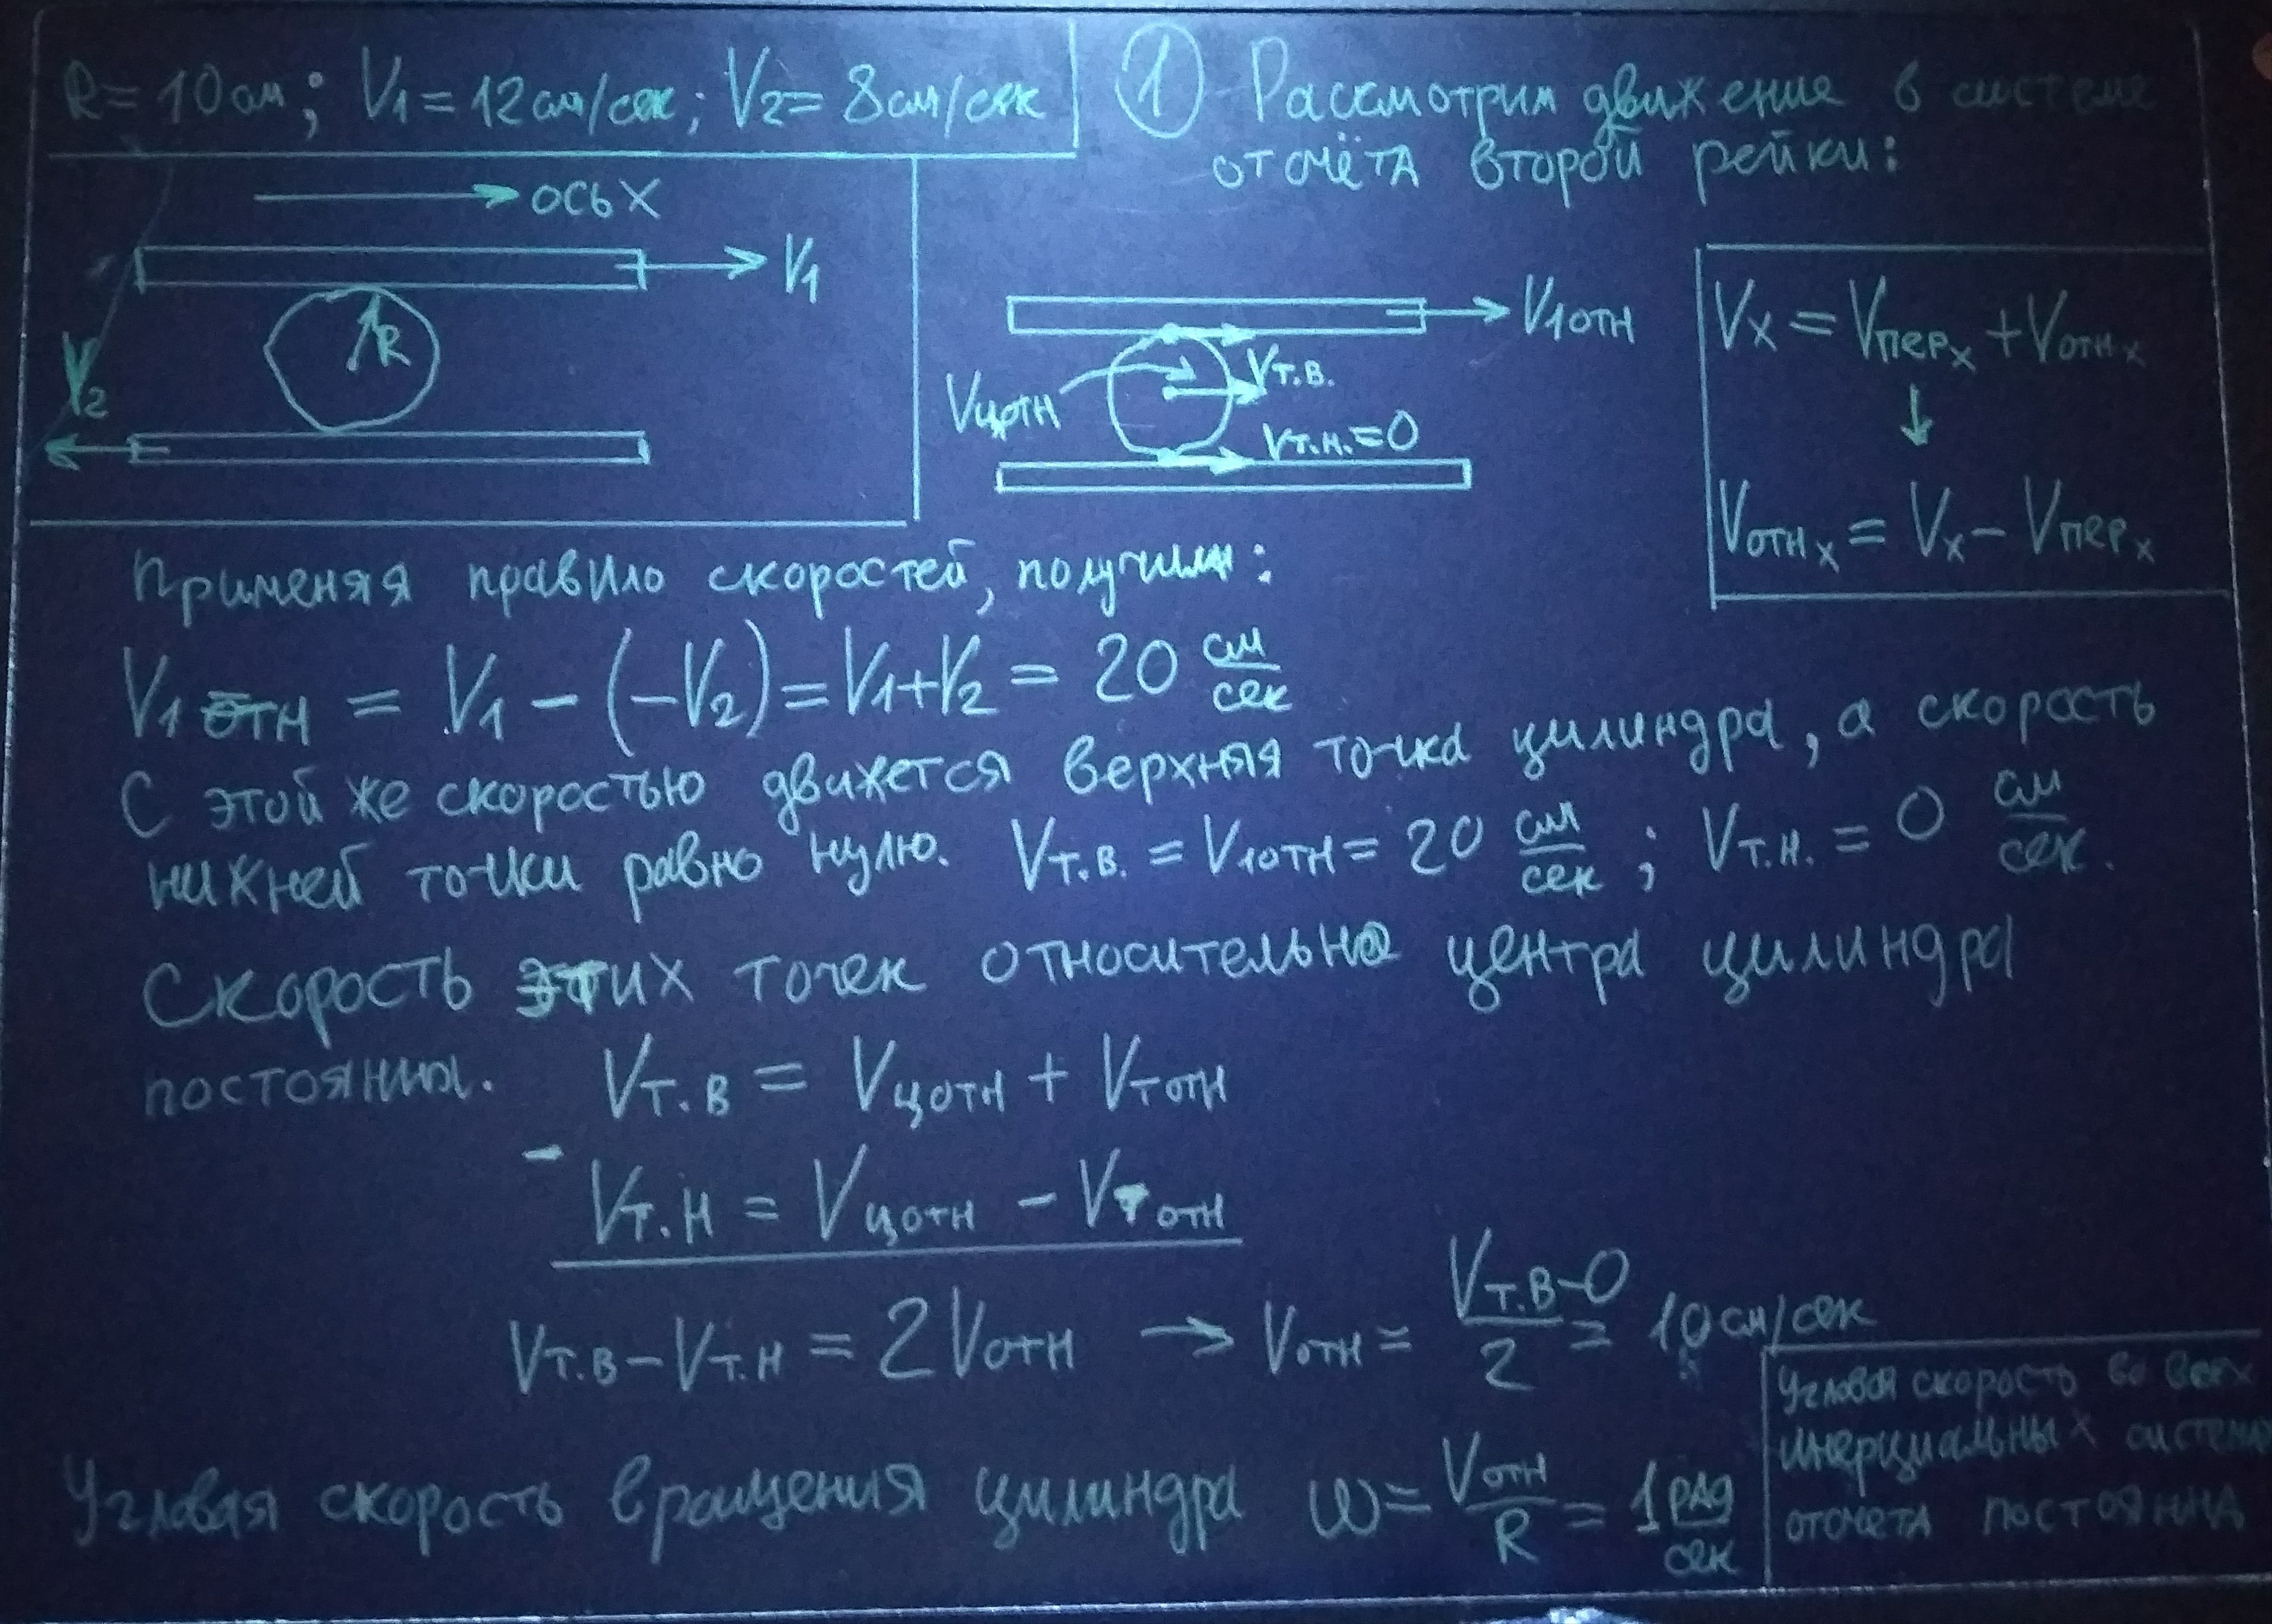 R=10см; V1=12см/сек; V2=8см/сек
① Рассмотрим движение в системе
отсчёта второй рейки:
ось X
V1
R
V2
V1отн
Vт.в.
Vцотн
Vт.н.=0
Vx = Vперx + Vотнx
↓
Vотнx = Vx − Vперx
Применяя правило скоростей, получим:
V1отн = V1 − (−V2) = V1+V2 = 20 см/сек
С этой же скоростью движется верхняя точка цилиндра, а скорость
нижней точки равно нулю. Vт.в. = V1отн = 20 см/сек ; Vт.н. = 0 см/сек.
Скорость этих точек относительно центра цилиндра
постоянны. Vт.в = Vцотн + Vтотн
− Vт.н = Vцотн − Vтотн
Vт.в − Vт.н = 2Vотн → Vотн = (Vт.в−0)/2 = 10см/сек
Угловая скорость вращения цилиндра ω = Vотн/R = 1 рад/сек
Угловая скорость во всех
инерциальных системах
отсчета постоянна